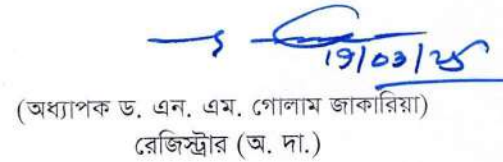 19/03/25
(অধ্যাপক ড. এন. এম. গোলাম জাকারিয়া)
রেজিস্ট্রার (অ. দা.)